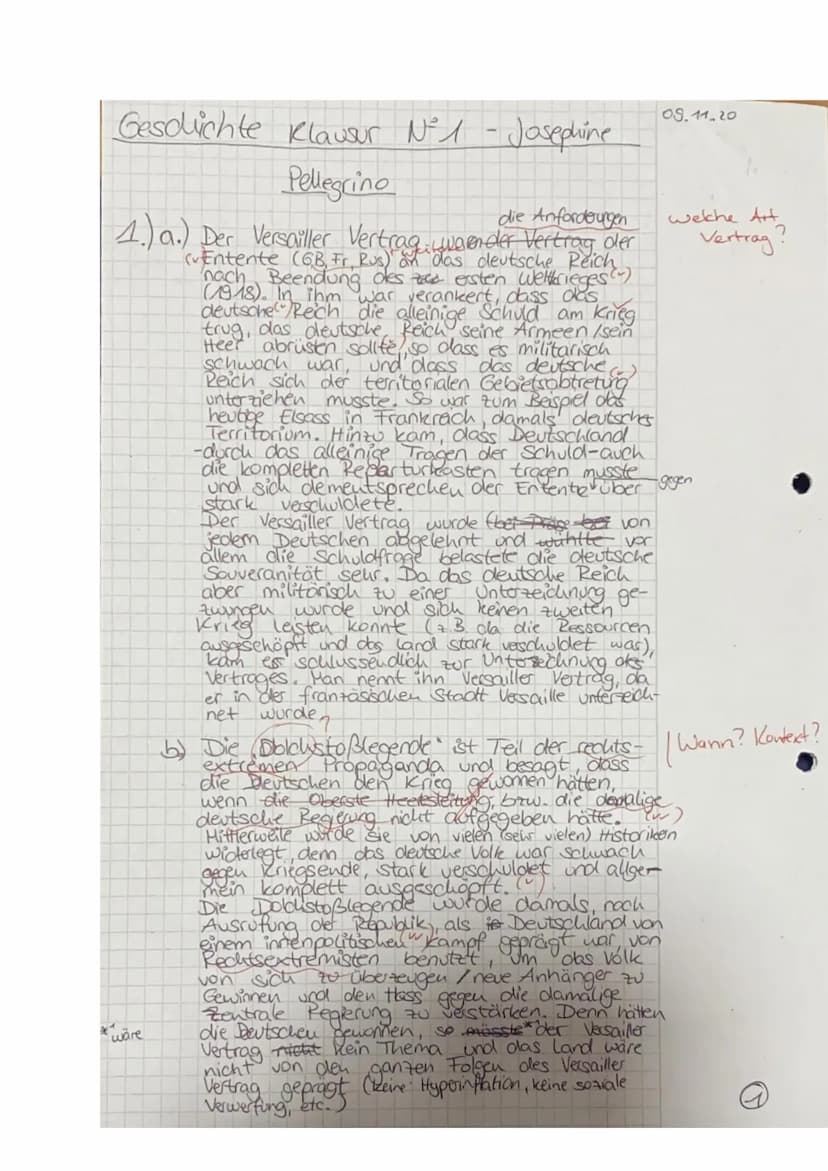 Geschichte Klausur N°1 - Josephine
09.11.20
Pellegrino
die Anforderungen
welche Art
Vertrag?
1.) a.) Der Versailler Vertrag der Vertrag der
Entente (GB, Fr, Rus) an das deutsche Reich
nach Beendung des ersten Weltkrieges
(1918). In ihm war verankert, dass das
deutsche Reich die alleinige Schuld am Krieg
trug, das deutsche Reich seine Armeen/sein
Heer abrüsten sollte, so dass es militärisch
schwach war, und dass das deutsche
Reich sich der territorialen Gebietsabtretung
unterziehen musste. So war zum Beispiel das
heutige Elsass in Frankreich, damals deutsches
Territorium. Hinzu kam, dass Deutschland
-durch das alleinige Tragen der Schuld-auch
die kompletten Reparturkosten tragen musste
und sich dementsprechen der Entente über
gegen
stark verschuldete.
Der Versailler Vertrag wurde von
jedem Deutschen abgelehnt und wühlte vor
allem die Schuldfrage belastete die deutsche
Souveranität sehr. Da das deutsche Reich
aber militärisch zu einer Unterzeichnung ge-
zwungen wurde und sich keinen zweiten
Krieg leisten konnte (z.B. da die Ressourcen
ausgeschöpft und das Land stark verschuldet war),
kam es schlussendlich zur Unterzeichnung des
Vertrages. Man nennt ihn Versailler Vertrag, da
er in der französischen Stadt Versaille unterzeich-
net wurde.
b) Die "Dolchstoßlegende" ist Teil der rechts-
Wann? Kontext?
extremen Propaganda und besagt, dass
die Deutschen den Krieg gewonnen hätten,
wenn die Oberste Heeresleitung, bzw. die damalige
deutsche Regierung nicht aufgegeben hätte.
Mittlerweile wurde sie von vielen (sehr vielen) Historikern
widerlegt, denn das deutsche Volk war schwach
gegen Kriegsende, stark verschuldet und allge-
mein komplett ausgeschöpft.
Die Dolchstoßlegende wurde damals, nach
Ausrufung der Republik, als Deutschland von
einem innenpolitischen Kampf geprägt war, von
Rechtsextremisten benutzt, um das Volk
von sich zu überzeugen / neue Anhänger zu
Gewinnen und den Hass gegen die damalige
Zentrale Regierung zu verstärken. Denn hätten
die Deutschen gewonnen, so müsste* der Versailler
*wäre
Vertrag nicht kein Thema und das Land wäre
nicht von den ganzen Folgen des Versailler
Vertrag geprägt (keine Hyperinflation, keine soziale
Verwerfung, etc.)
1